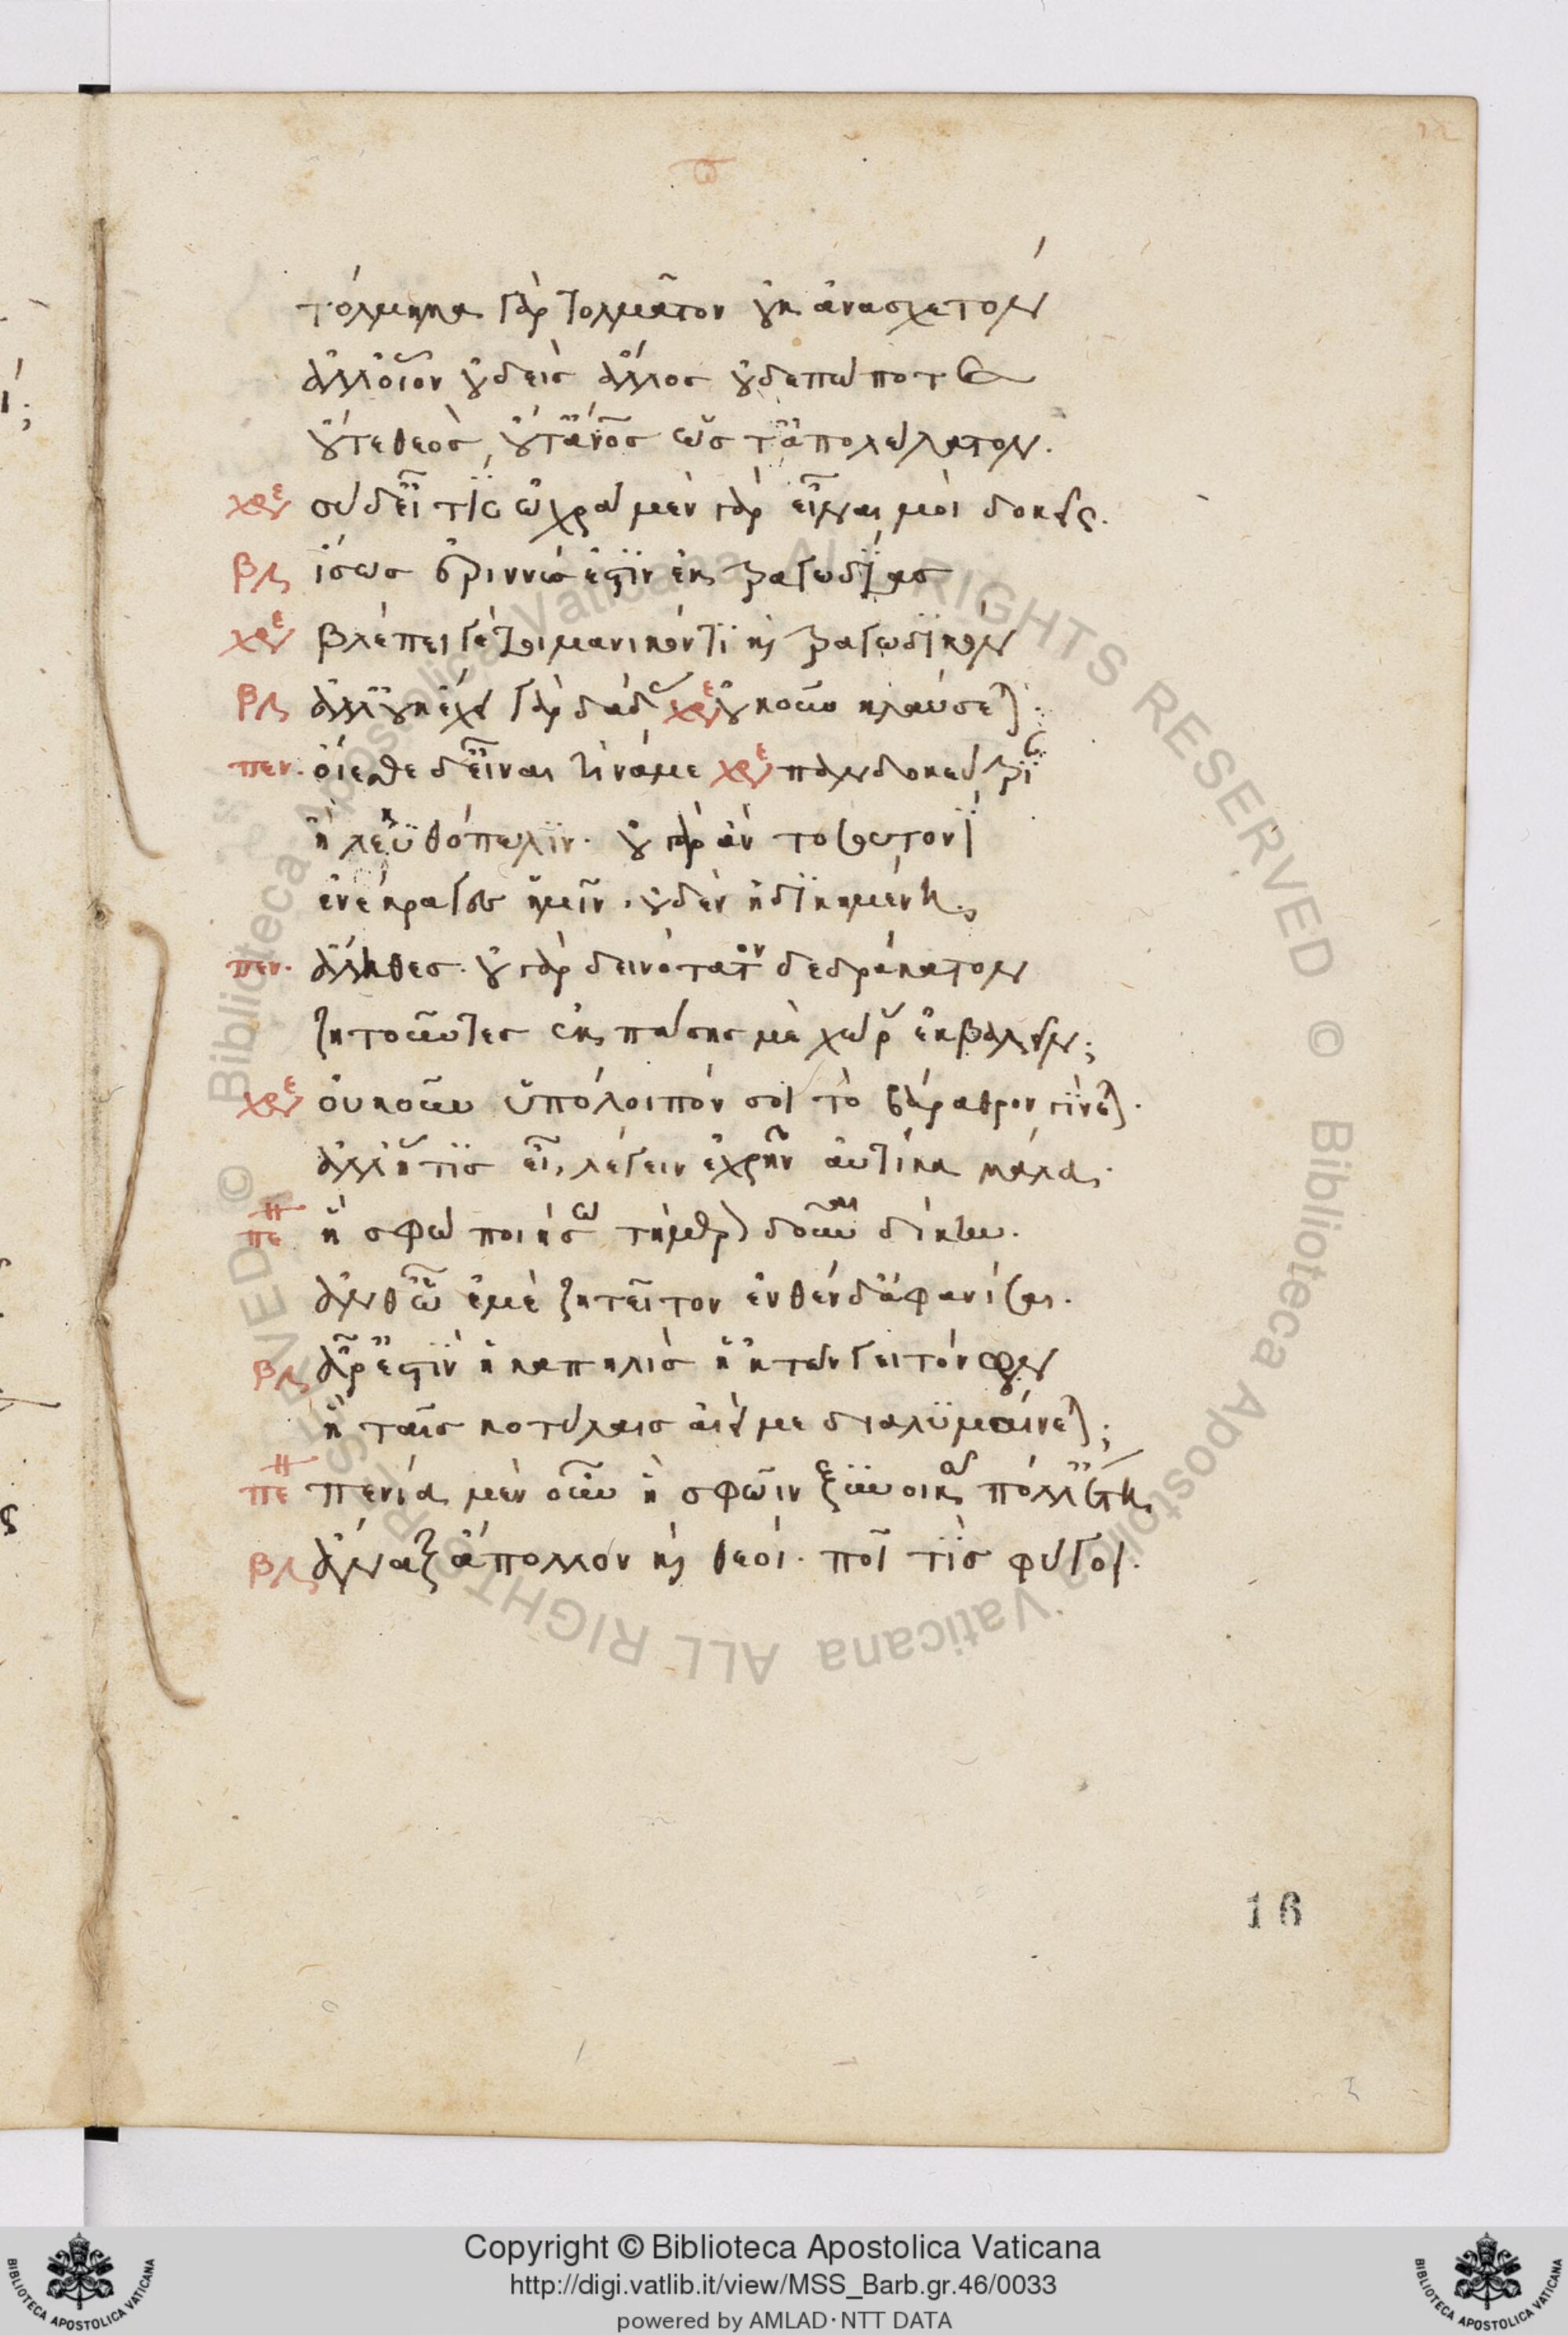 τόλμημα γὰρ τολμᾶτον οὐκ ἀνασχετόν
ἀλλ' οἷον οὐδεὶς ἄλλος οὐδεπώποτε
οὔτε θεὸς, οὔτ' ἄνος ὡς τ' ἀπολώλατον.
χρε σὺ δ' εἶ τίς ὠχρὰ μὲν γὰρ εἶναι μοὶ δοκεῖς.
βλ ἴσως ἐριννύς ἐστὶν ἐκ τραγωδίας
χρε βλέπει γέ τοι μανικόν τι καὶ τραγωδικόν
βλ ἀλλ' οὐκ ἔχει γὰρ δάδας χρε οὐκοῦν κλαύσεται.
πεν. οἴεσθε δ' εἶναι τίνα με χρε πανδοκεύτριαν
ἢ λεκυθόπωλιν. οὐ γὰρ ἂν τοσουτονὶ
ἐνέκραγες ἡμῖν. οὐδὲν ἠδικημένη
πεν. ἄληθες. οὐ γὰρ δεινότατον δεδράκατον
ζητοῦντες ἐκ πάσης με χώρας ἐκβαλεῖν;
χρε οὐκοῦν ὑπόλοιπόν σοι τὸ βάραθρον γίνεται.
ἀλλ' ἥτις εἶ, λέγειν ἐχρῆν αὐτίκα μάλα.
πε ἣ σφὼ ποιήσω τήμερον δοῦναι δίκην.
ἀνθ' ὧν ἐμὲ ζητεῖτον ἐνθένδ' ἀφανίσαι.
βλ ἆρ' ἐστὶν ἡ καπηλὶς ἡ 'κ τῶν γειτόνων
ἣ ταῖς κοτύλαις ἀεί με διαλυμαίνεται;
πε πενία μὲν οὖν ἣ σφῶιν ξυνοικῶ πόλλ' ἔτη
βλ ἄναξ ἄπολλον καὶ θεοί. ποῖ τὶς φύγοι.
16
Copyright © Biblioteca Apostolica Vaticana
http://digi.vatlib.it/view/MSS_Barb.gr.46/0033
powered by AMLAD·NTT DATA